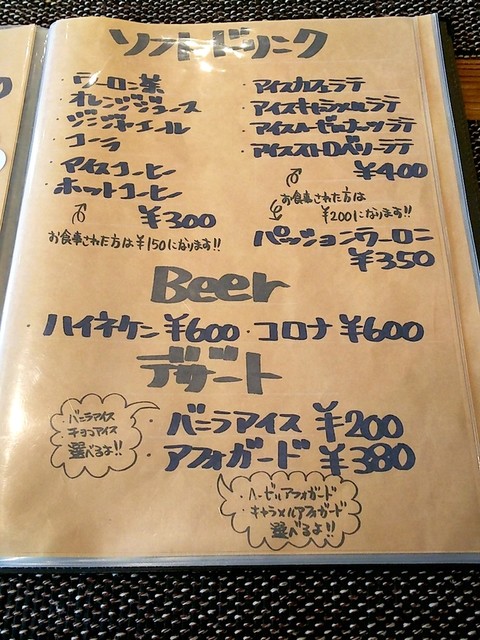 ソフトドリンク
・ウーロン茶
・オレンジジュース
・ジンジャーエール
・コーラ
・アイスコーヒー
・ホットコーヒー
¥300
お食事された方は¥150になります!!
・アイスカフェラテ
・アイスキャラメルラテ
・アイスヘーゼルナッツラテ
・アイスストロベリーラテ
¥400
お食事された方は
¥200になります!!
・パッションウーロン
¥350
Beer
・ハイネケン ¥600 ・コロナ ¥600
デザート
バニラアイス
チョコアイス
選べるよ!!
・バニラアイス ¥200
・アフォガード ¥380
・ヘーゼルアフォガード
・キャラメルアフォガード
選べるよ!!